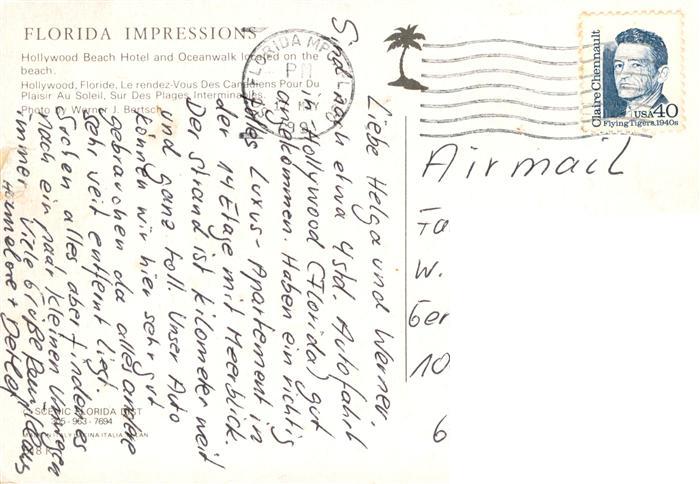 FLORIDA IMPRESSIONS
Hollywood Beach Hotel and Oceanwalk located on the
beach.
Hollywood, Floride, Le rendez-Vous Des Canadiens Pour Du
Plaisir Au Soleil, Sur Des Plages Interminables.
Photo by Werner J. Bertsch
Liebe Helga und Werner.
Sind nach etwa 4 Std. Autofahrt
in Hollywood (Florida) gut
angekommen. Haben ein richtig
Luxus-Apartement in
der 14 Etage mit Meerblick.
Der Strand ist kilometer weit
und ganz toll. Unser Auto
können wir hier sehr gut
gebrauchen da alles andere
sehr weit entfernt liegt.
Suchen alles aber finden es
nach ein paar kleinen
immer. Viele Grüße
Hannelore + Detlef
© SCENIC FLORIDA DIST
305-963-7694
FLORIDA MPC
PM
Airmail
Ta
W.
Ger
10
6
Claire Chennault
USA 40
Flying Tigers, 1940s